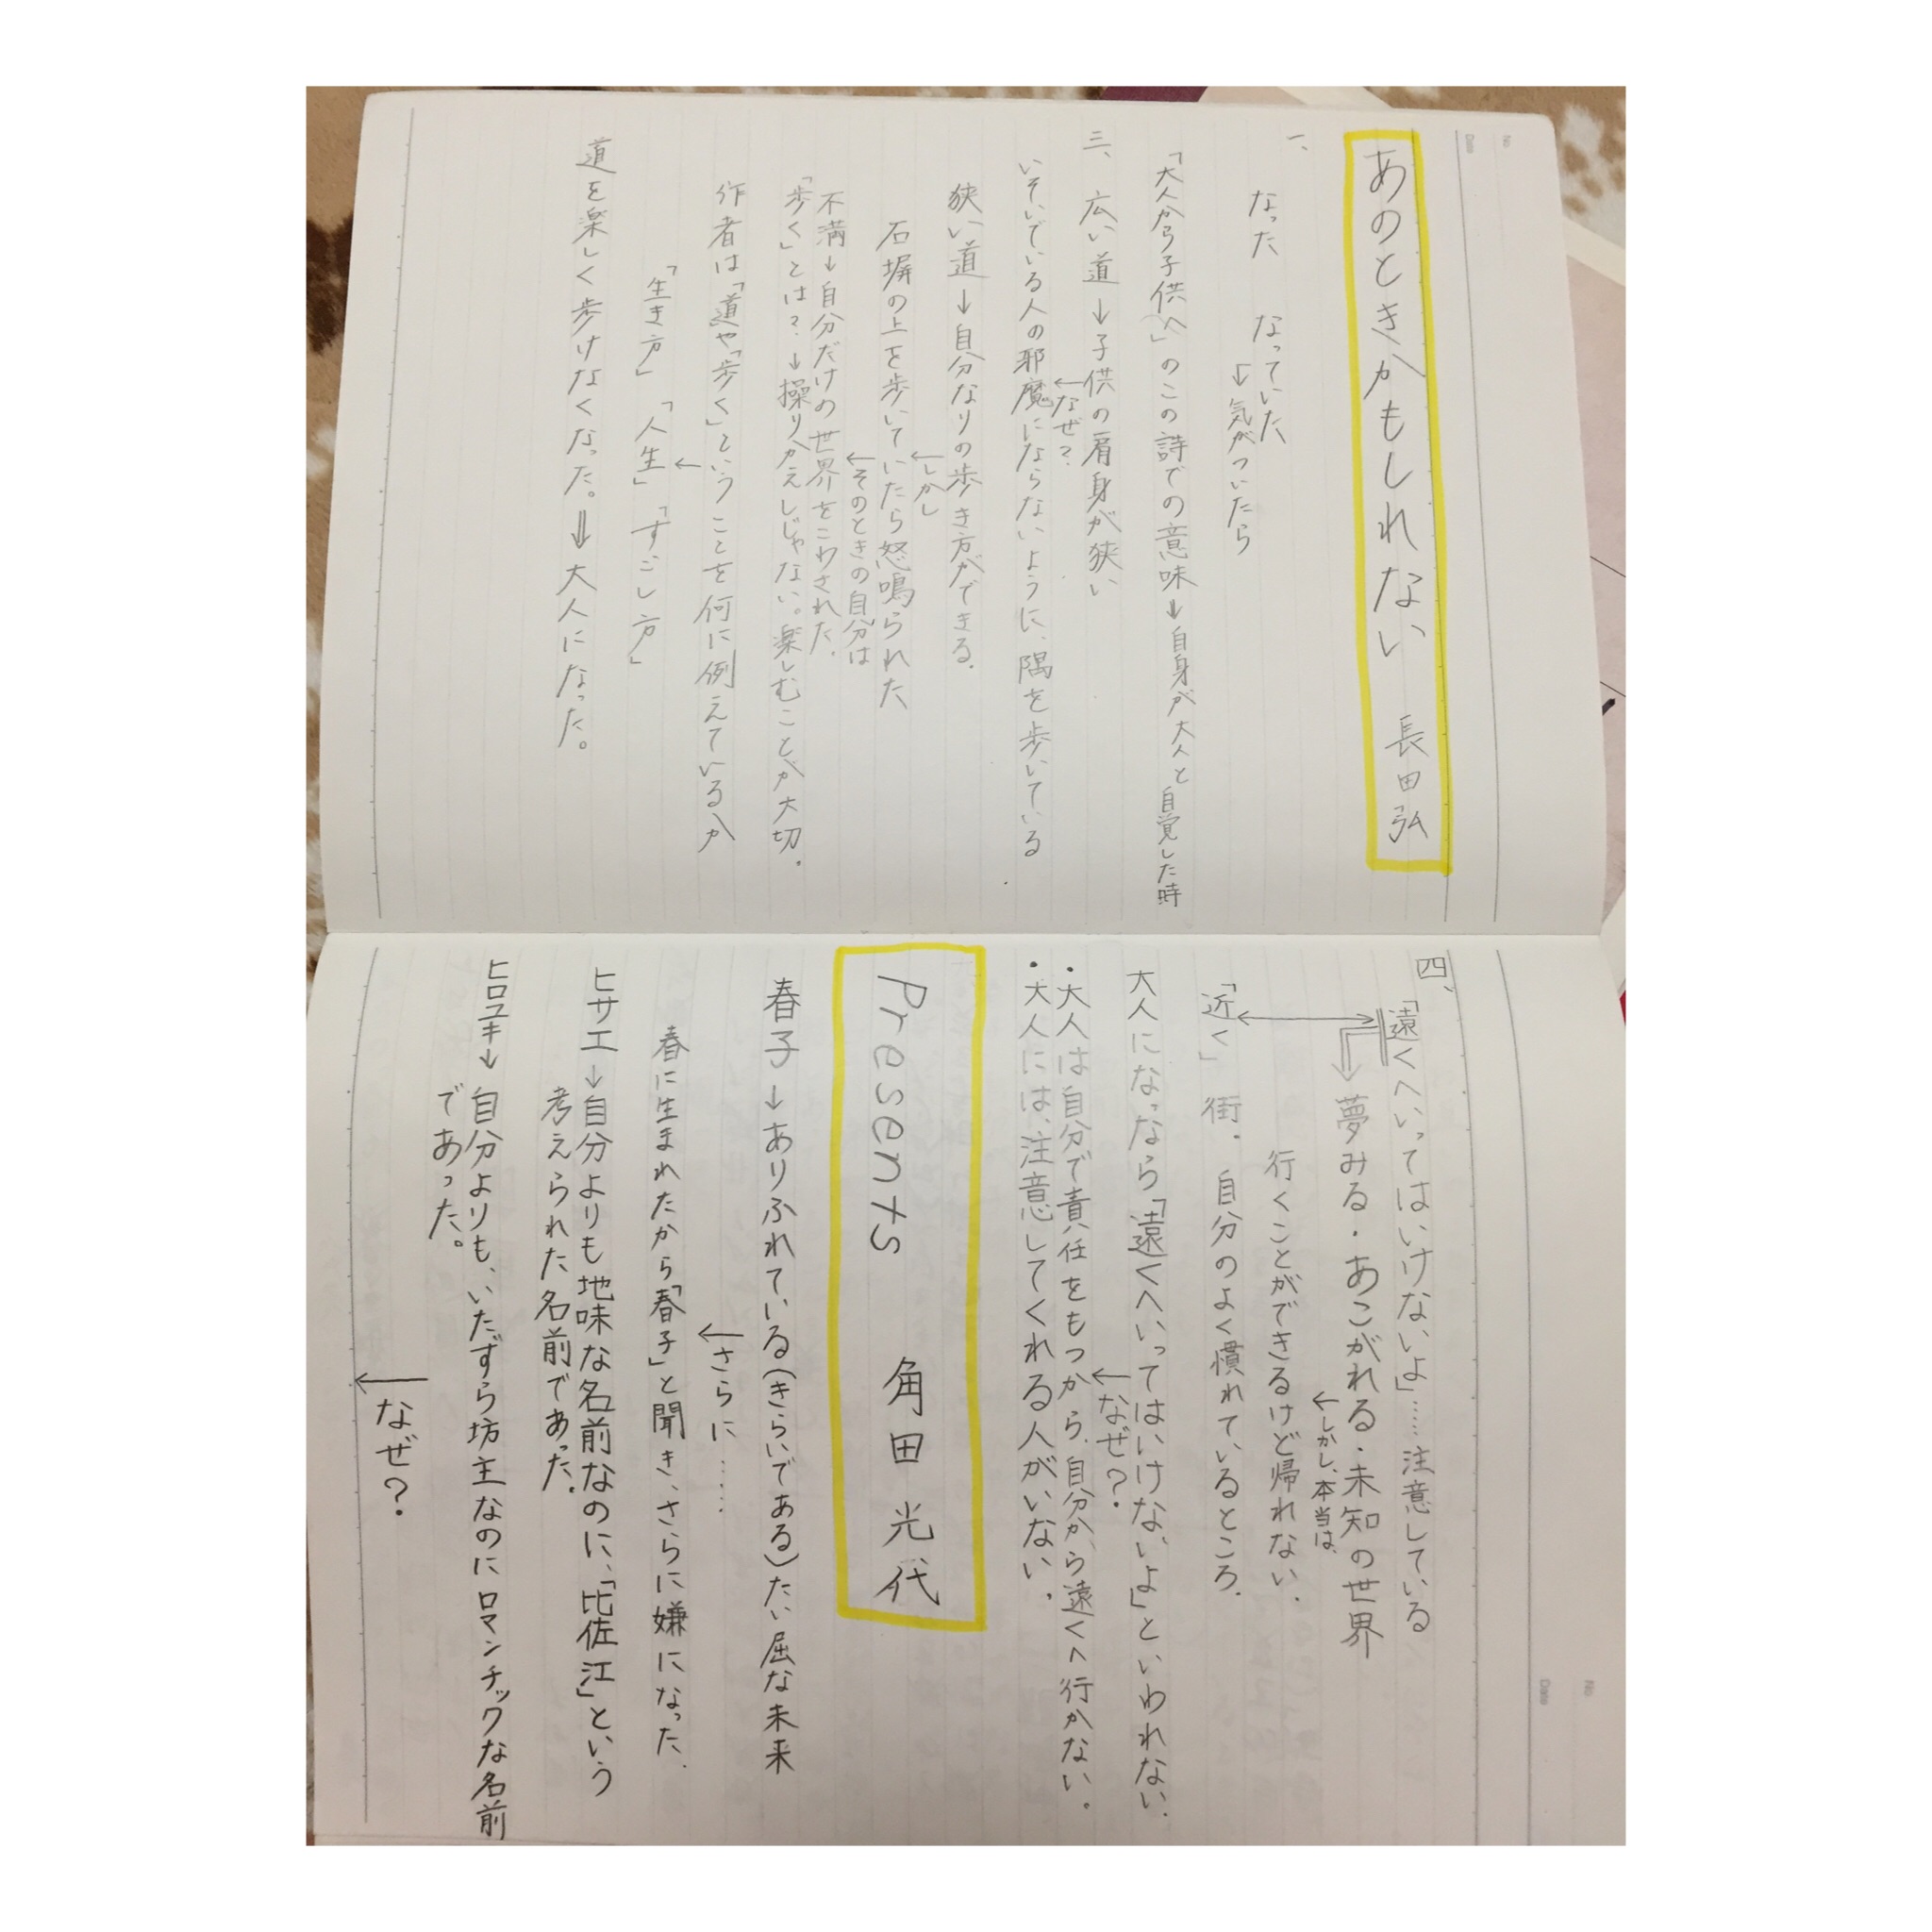 No
Date
あのときかもしれない 長田弘
一、
なった なっていた
↓気がついたら
「大人から子供へ」のこの詩での意味→自身が大人と自覚した時
三、広い道→子供の肩身が狭い
←なぜ？
いそいでいる人の邪魔にならないように、隅を歩いている
狭い道→自分なりの歩き方ができる.
←しかし
石塀の上を歩いていたら怒鳴られた
←そのときの自分は
不満→自分だけの世界をこわされた.
「歩く」とは？→操りかえしじゃない。楽しむことが大切.
作者は「道」や「歩く」ということを何に例えているか
←
「生き方」「人生」「すごし方」
道を楽しく歩けなくなった。⇒大人になった。
No
Date
四、「遠くへいってはいけないよ」……注意している
⇒夢みる・あこがれる・未知の世界
←しかし、本当は、
行くことができるけど帰れない.
↔
「近く」 街. 自分のよく慣れているところ.
大人になったなら「遠くへいってはいけないよ」といわれない.
←なぜ？
・大人は自分で責任をもつから、自分から遠くへ行かない.
・大人には、注意してくれる人がいない.
Presents 角田光代
春子→ありふれている(きらいである)たい屈な未来
←さらに……
春に生まれたから「春子」と聞き、さらに嫌になった.
ヒサエ→自分よりも地味な名前なのに、「比佐江」という
考えられた名前であった.
ヒロユキ→自分よりも、いたずら坊主なのにロマンチックな名前
であった。
←なぜ？